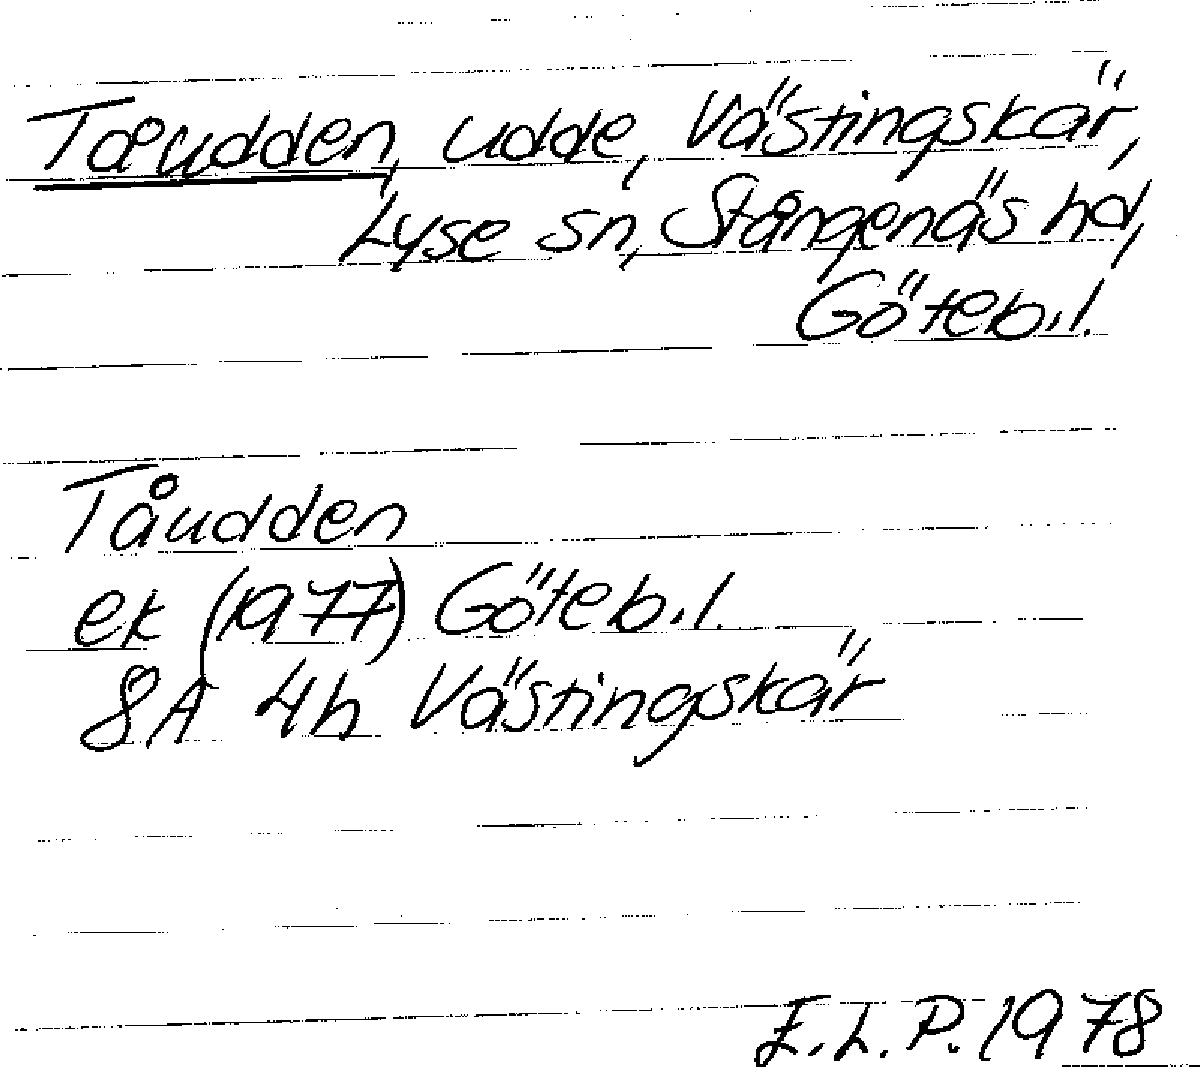 Tåudden, udde, Västingskär,
Lyse sn, Stångenäs hd,
Göteb.l.
Tåudden
ek (1977) Göteb.l.
8A 4h Västingskär
E.L.P. 1978